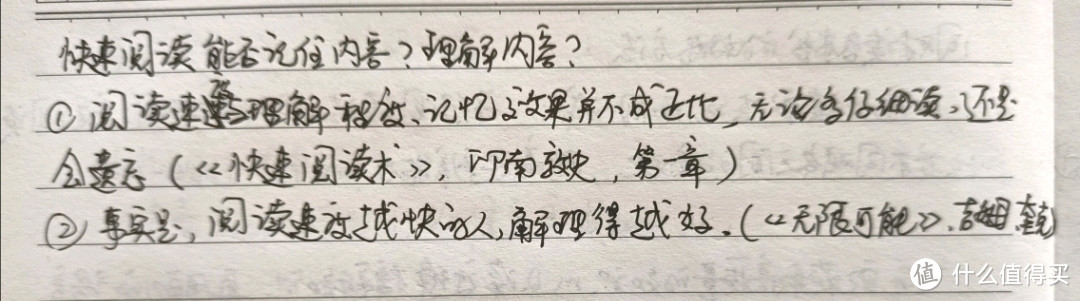 快速阅读能否记住内容？理解内容？
① 阅读速度与理解程度、记忆效果并不成正比，无论多仔细读，还是
会遗忘（《快速阅读术》，印南敦史，第一章）
② 事实是，阅读速度越快的人，解理得越好。（《无限可能》，吉姆·奎克）
值 什么值得买